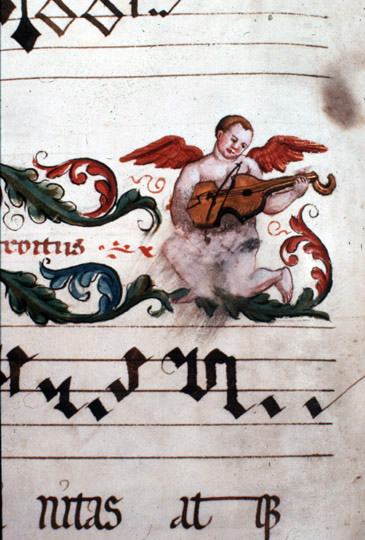 roitus
nitas at qꝫ